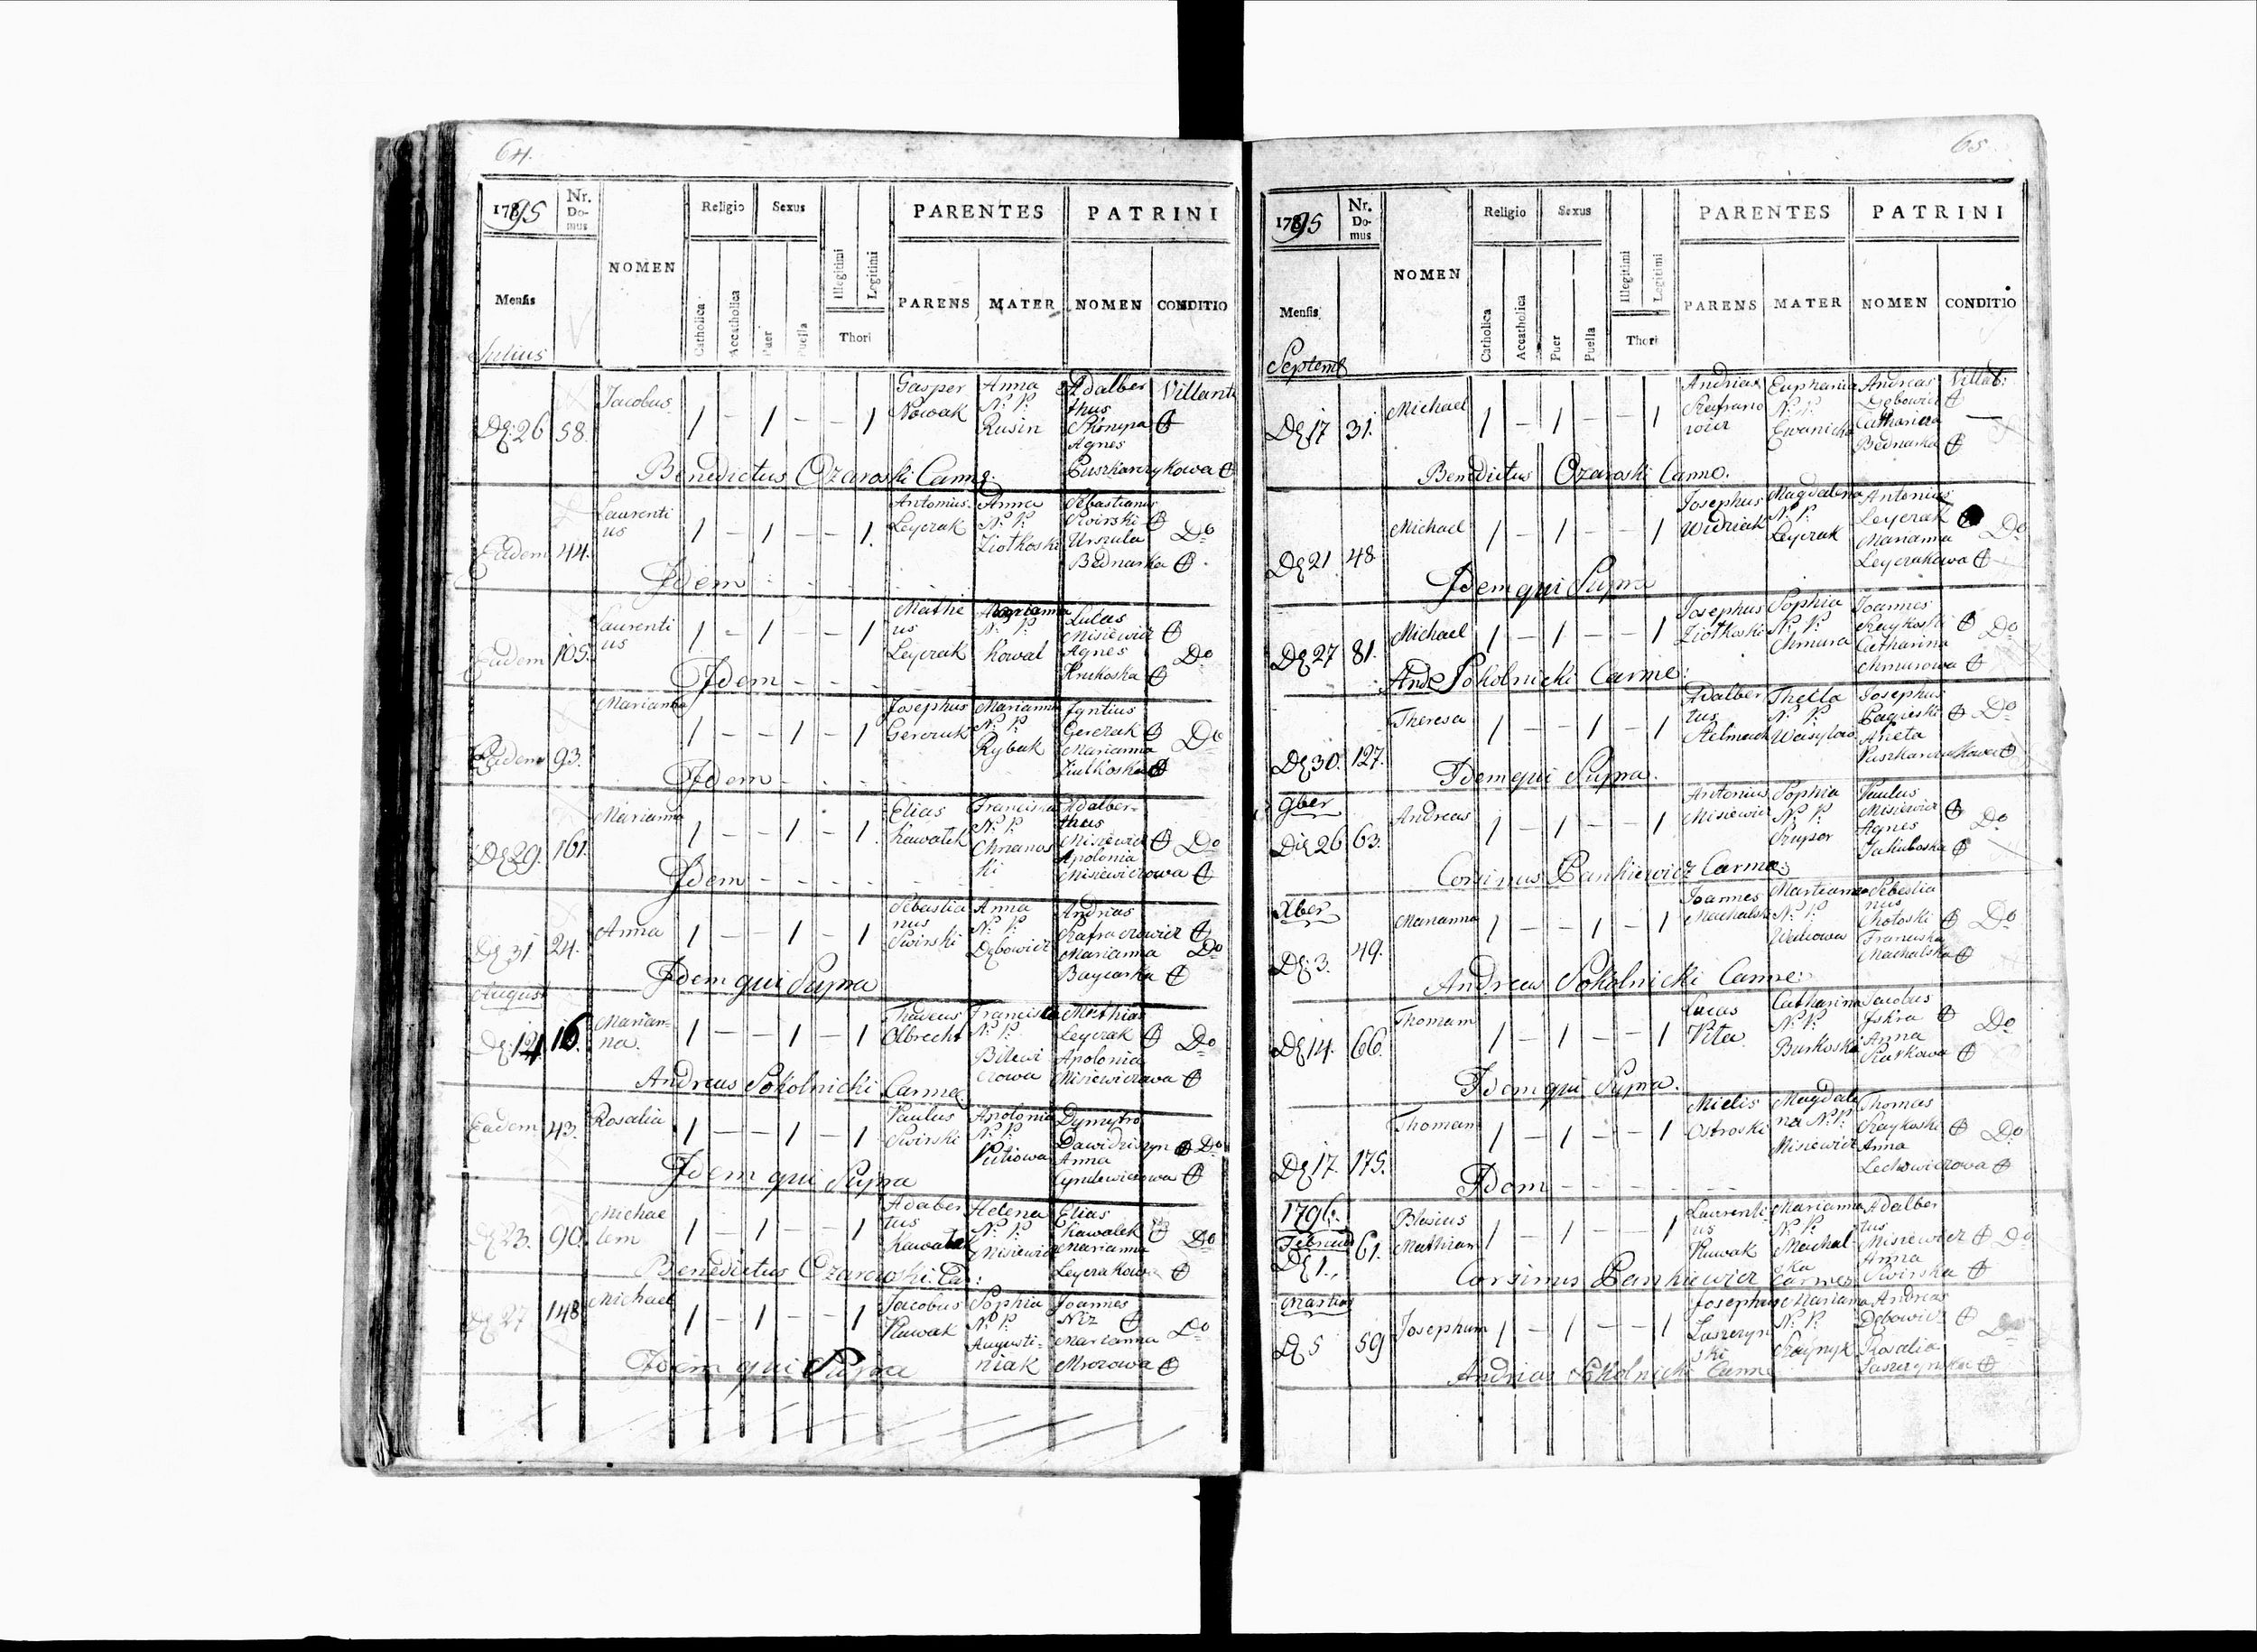 64.
1795 Nr. Do- mus NOMEN Religio Sexus Illegitimi Legitimi PARENTES PATRINI
Mensis Catholica Accatholica Puer Puella Thori PARENS MATER NOMEN CONDITIO
Julius
De 26 58. Jacobus 1 – 1 – – 1 Gasper Nowak Anna N. P. Rusin Adalber thus Agnes Puszkarzykowa Villani
Benedictus Ozaroski Carme
Eadem 44. Laurenti us 1 – 1 – – 1. Antonius Leyczak Anna N. P. Ziotkoski Sebastianus Swirski Urszula Bednarka Do
Idem
Eadem 105. Laurenti us 1 – 1 – – 1 Mathe us Leyczak Marianna N. P. Kowal Lucas Misiewicz Agnes Krukoska Do
Idem
Eadem 93. Marianna 1 – – 1 – 1 Josephus Gerczak Marianna N. P. Rybak Igntius Gerczak Marianna Ziutkoska Do
Idem
De 29. 161. Marianna 1 – – 1 – 1 Elias Kawalek Francisca N. P. Chranos ki Adalber thus Misiewicz Apolonia Misiewiczowa Do
Idem
De 31 24. Anna 1 – – 1 – 1 Sebastia nus Swirski Anna N. P. Dębowicz Andrias Szafranowicz Marianna Baycarka Do
Idem qui Supra
August
De 14 16. Marian= na. 1 – – 1 – 1 Thadeus Olbrecht Francisca N. P. Bilewi czowa Mathias Leyczak Apolonia Misiewiczowa Do
Andreas Sokolnicki Carme
Eadem 43. Rosalia 1 – – 1 – 1 Paulus Swirski Apolonia N. P. Dymytro Dawidziszyn Anna Do
Idem qui Supra
De 23. 90. Michae lem 1 – 1 – – 1 Adaber tus Kawalek Helena N. P. Misiewicz Elias Kawalek Marianna Leyczakowa Do
Benedictus Ozaroski Car:
De 27 148 Michael 1 – 1 – – 1 Jacobus Nawak Sophia N. P. Augusti= niak Joannes Marianna Mrozowa Do
Idem qui Supra
65
1795 Nr. Do- mus NOMEN Religio Sexus Illegitimi Legitimi PARENTES PATRINI
Mensis Catholica Accatholica Puer Puella Thori PARENS MATER NOMEN CONDITIO
Septemb
De 17 31. Michael 1 – 1 – – 1 Andrias Szafrano wicz Euphania N. P. Iwanicka Andreas Dębowicz Catharina Bednarka Villa:
Benedictus Ozaroski Carme.
De 21 48 Michael 1 – 1 – – 1 Josephus Widziak Magdalena N. P. Leyczak Antonius Leyczak Marianna Leyczakowa Do
Idem qui Supra
De 27 81. Michael 1 – 1 – – 1 Josephus Ziotkoski Sophia N. P. Chmura Joannes Szaykoski Catharina Chmurowa Do
Andr Sokolnicki Carme:
De 30. 127. Theresa 1 – – 1 – 1 Adalber tus Stelmach Thecla N. P. Josephus Bagieski Aneta Do
Idem qui Supra.
9ber
Die 26 63. Andreas 1 – 1 – – 1 Antonius Misiewicz Sophia N. P. Paulus Misiewicz Agnes Jakuboska Do
Corsinus Pankiewicz Carme:
Xber
De 3. 49. Marianna 1 – – 1 – 1 Joannes Machalski Marianna N. P. Sebestia nus Francisca Machalska Do
Andreas Sokolnicki Carme:
De 14. 66. Thomam 1 – 1 – – 1 Lucas Pita Catharina N. P. Burkoska Jacobus Iskra Anna Do
Idem qui Supra.
De 17. 175. Thomam 1 – 1 – – 1 Ostroski Magdale na N. P. Misiewicz Thomas Szaykoski Anna Lechowiczowa Do
Idem
1796.
Februar De 1. 61. Blasius Mathiam 1 – 1 – – 1 Laurenti us Nawak Marianna N. P. Machal ska Adalber tus Misiewicz Anna Swirska Do
Corsinus Pankiewicz Carmel
Martius
De 5 59 Josephum 1 – 1 – – 1 Josephus Laszczyn ski Marianna N. P. Andreas Dębowicz Rosalia Laszczynska Do
Andrias Sokolnicki Carme